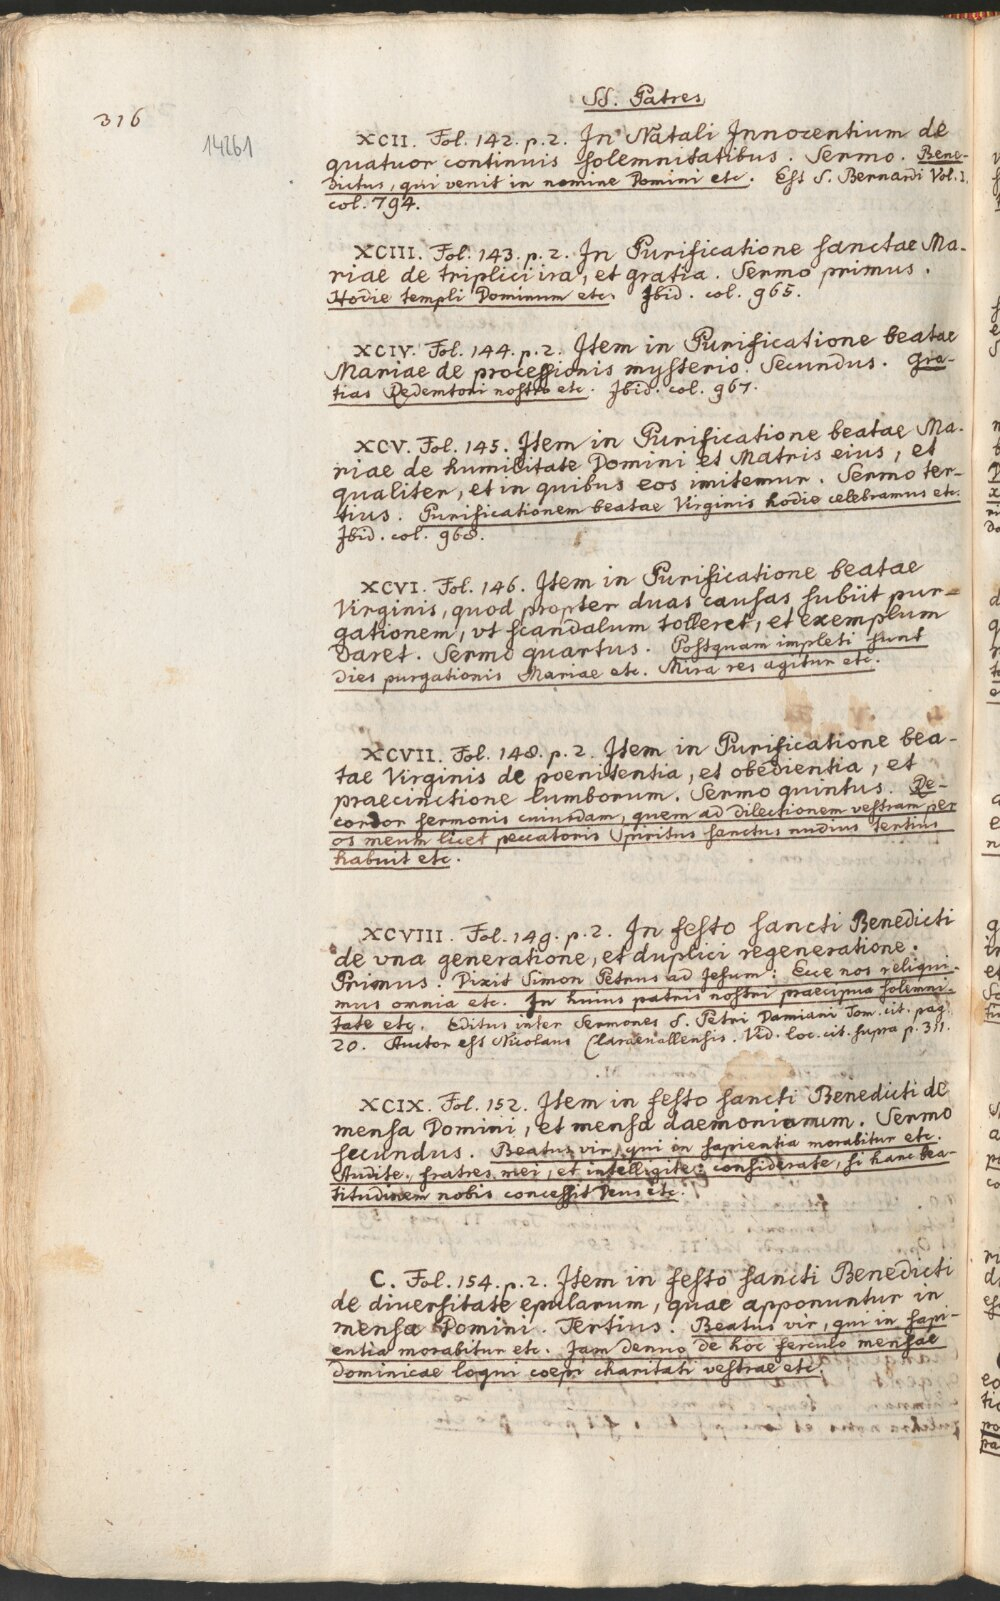 SS. Patres
316
14261
XCII. Fol. 142. p. 2. In Natali Innocentium de
quatuor continuis solemnitatibus. Sermo. Bene-
dictus, qui venit in nomine Domini etc. Est S. Bernardi Vol. I.
col. 794.
XCIII. Fol. 143. p. 2. In Purificatione sanctae Ma-
riae de triplici ira, et gratia. Sermo primus.
Hodie templi Dominum etc. Ibid. col. 965.
XCIV. Fol. 144. p. 2. Item in Purificatione beatae
Mariae de processionis mysterio. Secundus. Gra-
tias Redemtori nostro etc. Ibid. col. 967.
XCV. Fol. 145. Item in Purificatione beatae Ma-
riae de humilitate Domini et Matris eius, et
qualiter, et in quibus eos imitemur. Sermo ter-
tius. Purificationem beatae Virginis hodie celebramus etc.
Ibid. col. 968.
XCVI. Fol. 146. Item in Purificatione beatae
Virginis, quod propter duas causas subiit pur-
gationem, vt scandalum tolleret, et exemplum
daret. Sermo quartus. Postquam impleti sunt
dies purgationis Mariae etc. Mira res agitur etc.
XCVII. Fol. 148. p. 2. Item in Purificatione bea-
tae Virginis de poenitentia, et obedientia, et
praecinctione lumborum. Sermo quintus. Re-
cordor sermonis cuiusdam, quem ad dilectionem vestram per
os meum licet peccatoris Spiritus sanctus nudius tertius
habuit etc.
XCVIII. Fol. 149. p. 2. In festo sancti Benedicti
de vna generatione, et duplici regeneratione.
Primus. Dixit Simon Petrus ad Jesum: Ecce nos reliqui-
mus omnia etc. In huius patris nostri praecipua solemni-
tate etc. Editus inter Sermones S. Petri Damiani Tom. cit. pag.
20. Auctor est Nicolaus Claraevallensis. Vid. loc. cit. supra p. 311.
XCIX. Fol. 152. Item in festo sancti Benedicti de
mensa Domini, et mensa daemoniorum. Sermo
secundus. Beatus vir, qui in sapientia morabitur etc.
Audite, fratres mei, et intelligite: considerate, si hanc bea-
titudinem nobis concessit Deus etc.
C. Fol. 154. p. 2. Item in festo sancti Benedicti
de diversitate epularum, quae apponuntur in
mensa Domini. Tertius. Beatus vir, qui in sapi-
entia morabitur etc. Jam denuo de hoc ferculo mensae
dominicae loqui coepi charitati vestrae etc.